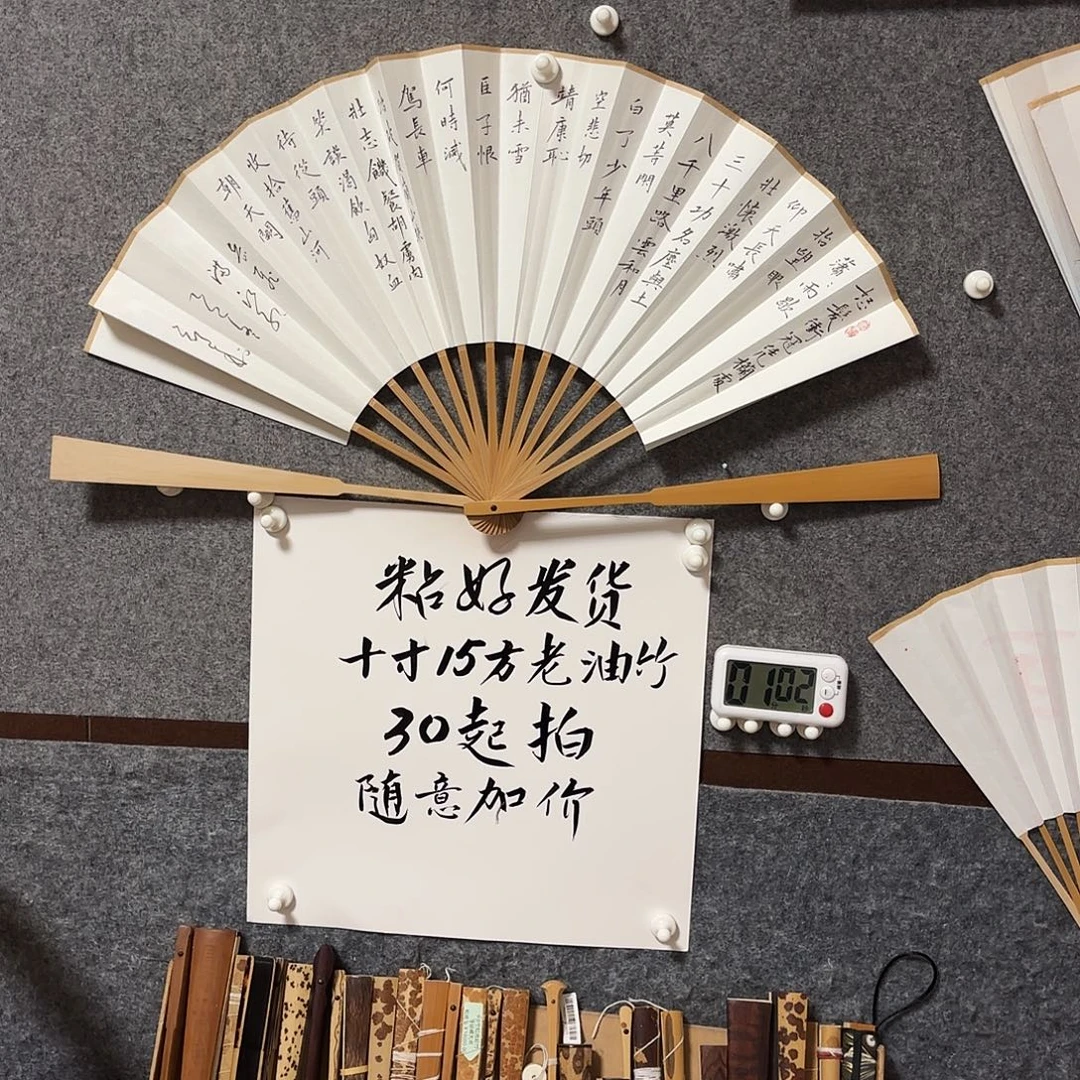 怒髮衝冠凭欄處
蕭:雨歇
抬望眼
仰天長嘯
壯懷激烈
三十功名塵與土
八千里路雲和月
莫等閒
白了少年頭
空悲切
靖康恥
猶未雪
臣子恨
何時滅
駕長車
壯志饑餐胡虜肉
笑談渴飲匈奴血
待從頭
收拾舊山河
朝天闕
岳飛
滿江紅
粘好发货
十寸15方老油竹
30起拍
随意加价
0102